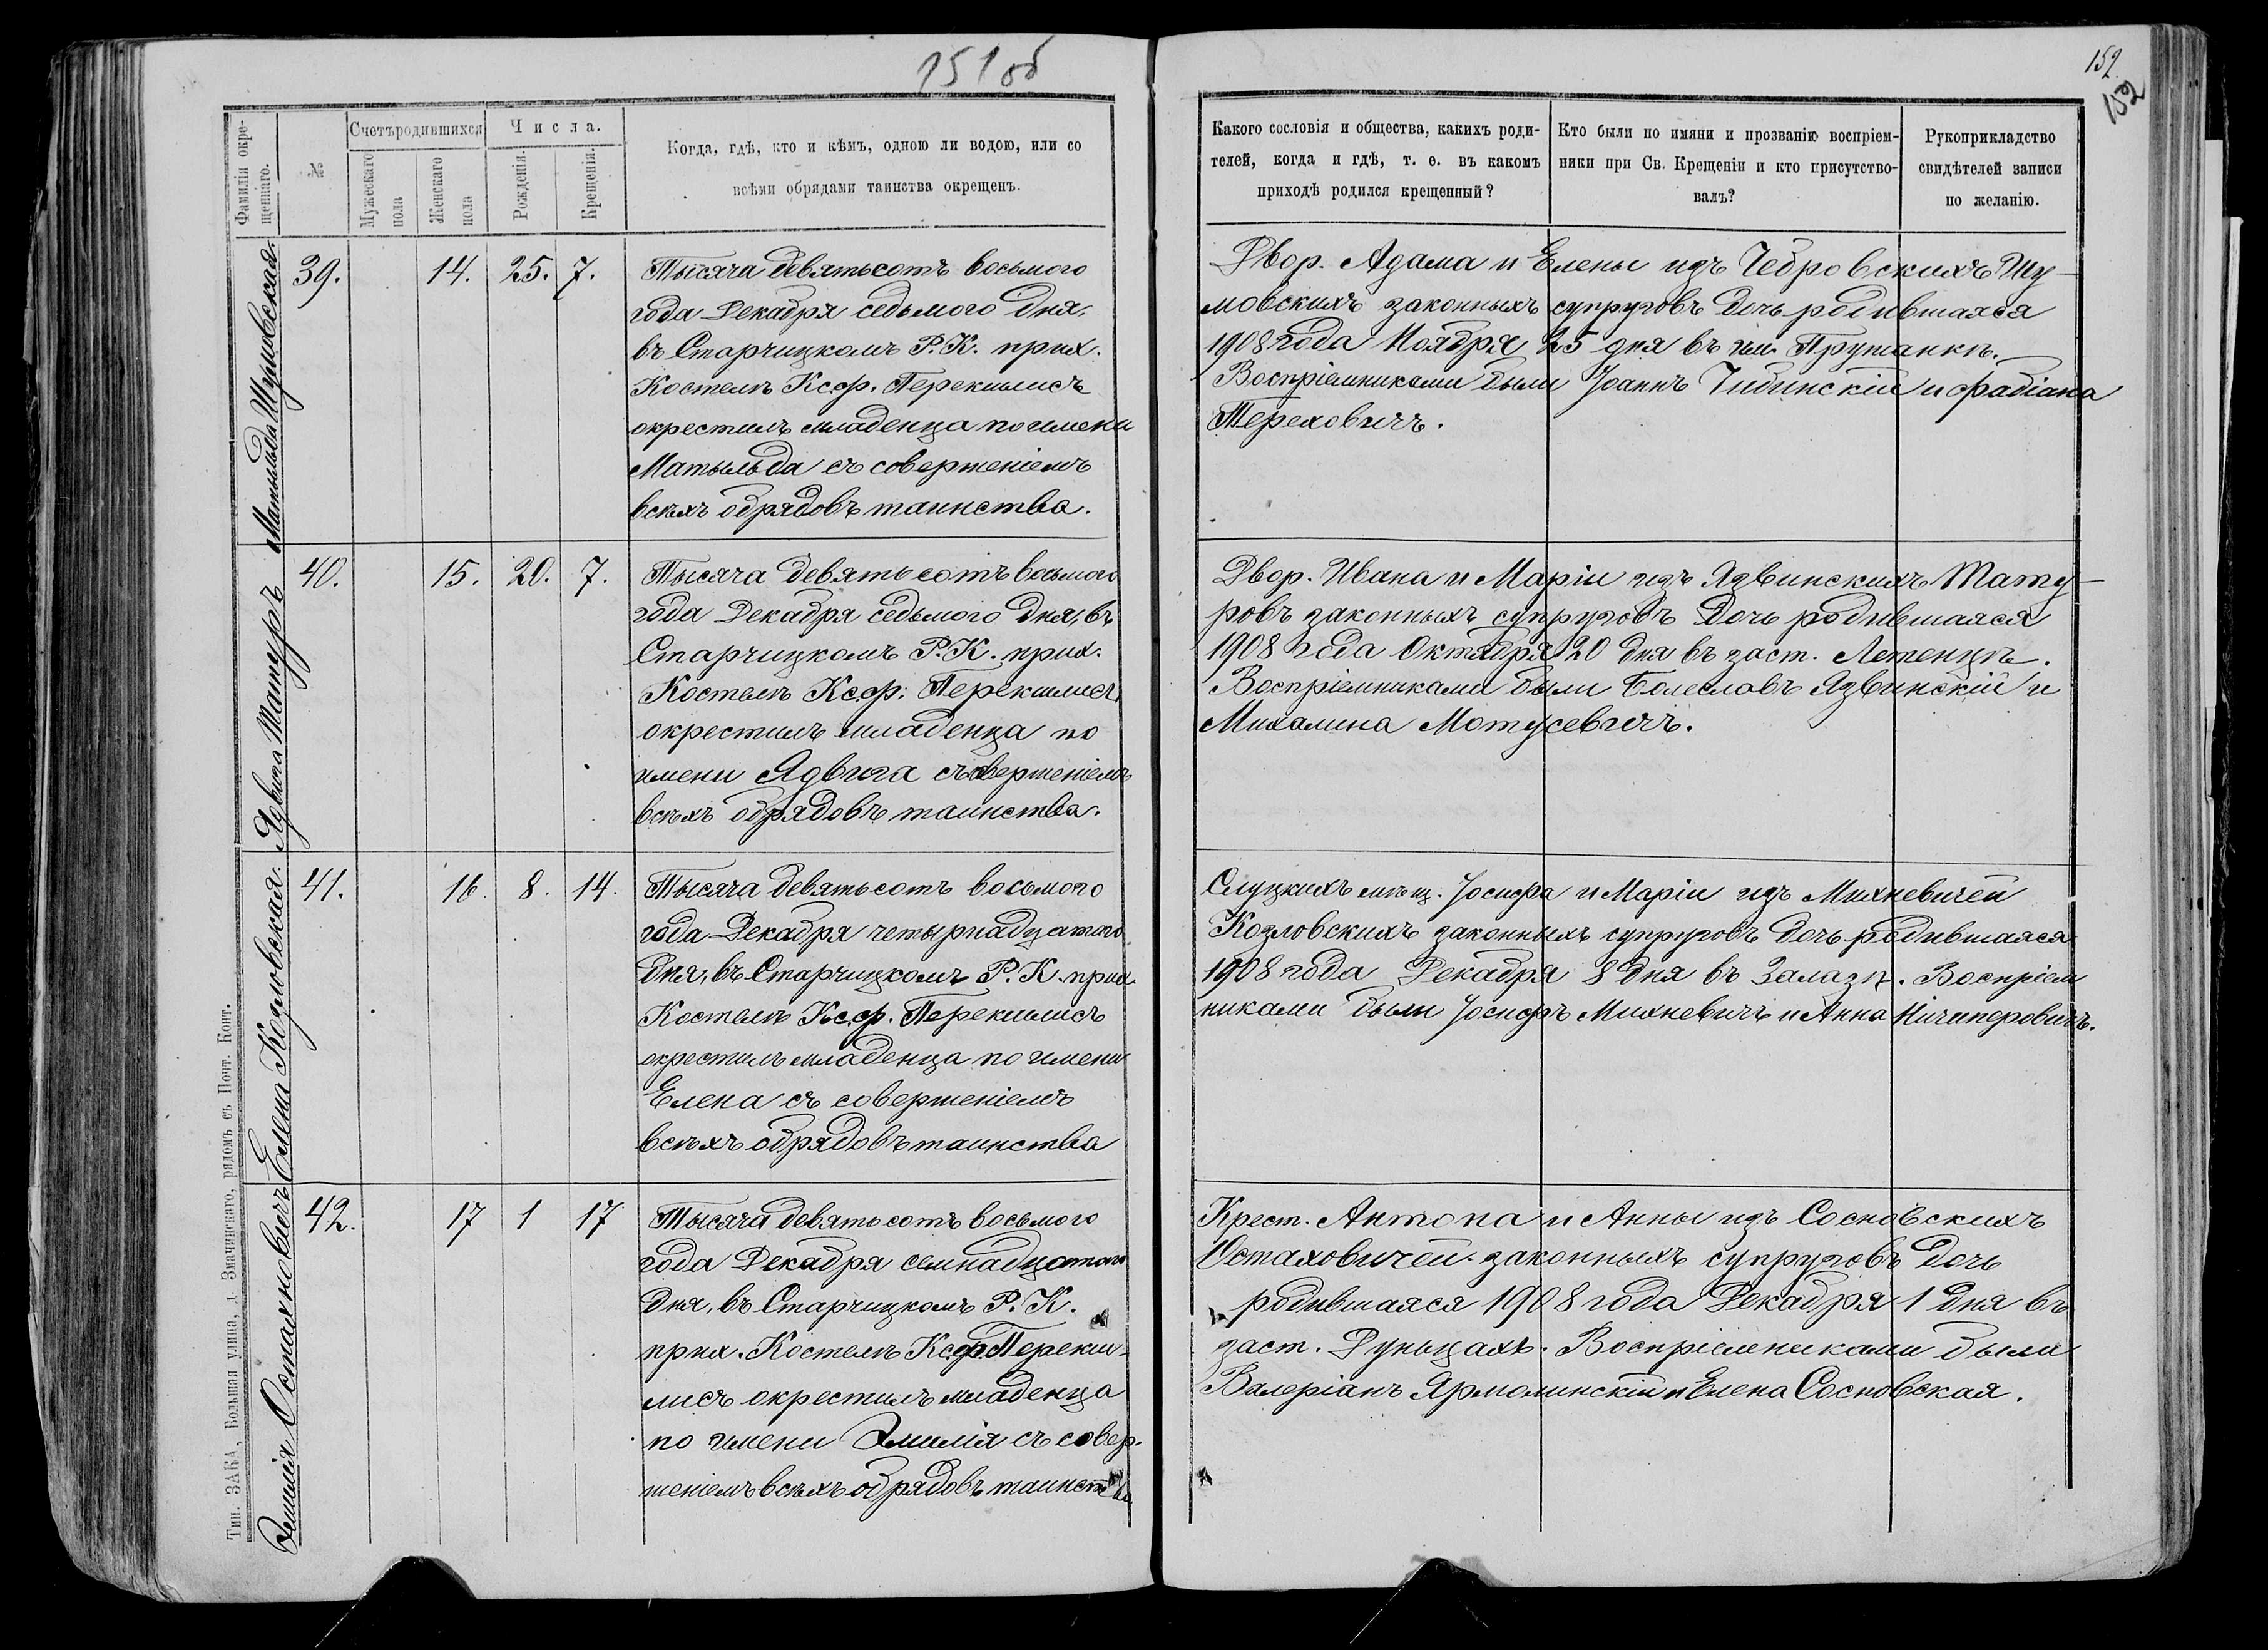 151 об
Фамилія окре-
щеннаго.
№
Счетъ родившихся
Мужескаго
пола
Женскаго
пола
Числа.
Рожденія.
Крещенія.
Когда, гдѣ, кто и кѣмъ, одною ли водою, или со
всѣми обрядами таинства окрещенъ.
Матыльда Шумовская.
39. 14. 25. 7.
Тысяча девятьсотъ восьмого
года Декабря седьмого дня,
въ Старчицкомъ Р. К. прих.
Костелѣ Ксф. Перекшлисъ
окрестилъ младенца по имени
Матыльда съ совершеніемъ
всѣхъ обрядовъ таинства.
Ядвига Матуръ
40. 15. 20. 7.
Тысяча девятьсотъ восьмого
года Декабря седьмого дня, въ
Старчицкомъ Р. К. прих.
Костелѣ Ксф. Перекшлисъ
окрестилъ младенца по
имени Ядвига съ совершеніемъ
всѣхъ обрядовъ таинства.
Елена Козловская.
41. 16. 8. 14.
Тысяча девятьсотъ восьмого
года Декабря четырнадцатого
дня, въ Старчицкомъ Р. К. прих.
Костелѣ Ксф. Перекшлисъ
окрестилъ младенца по имени
Елена съ совершеніемъ
всѣхъ обрядовъ таинства
Эмилія Остахновичъ
42. 17 1 17
Тысяча девятьсотъ восьмого
года Декабря семнадцатого
дня, въ Старчицкомъ Р. К.
прих. Костелѣ Ксф. Перекш-
лисъ окрестилъ младенца
по имени Эмилія съ совер-
шеніемъ всѣхъ обрядовъ таинства
Тип. ЗАКА, Большая улица, д. Змачинскаго, рядомъ съ Почт. Конт.
152
152
Какого сословія и общества, какихъ роди-
телей, когда и гдѣ, т. е. въ какомъ
приходѣ родился крещенный?
Кто были по имяни и прозванію воспріем-
ники при Св. Крещеніи и кто присутство-
валъ?
Рукоприкладство
свидѣтелей записи
по желанію.
Двор. Адама и Елены изъ Чебровскихъ Шу-
мовскихъ законныхъ супруговъ дочь родившаяся
1908 года Ноября 25 дня въ им. Прутанкѣ.
Воспріемниками были Іоаннъ Чибинскій и Фабіана
Тереховичъ.
Двор. Ивана и Маріи изъ Язвинскихъ Мату-
ровъ законныхъ супруговъ дочь родившаяся
1908 года Октября 20 дня въ заст. Летенцѣ.
Воспріемниками были Болеславъ Язвинскій и
Михалина Мотусевичъ.
Слуцкихъ мѣщ. Іосифа и Маріи изъ Михневичей
Козловскихъ законныхъ супруговъ дочь родившаяся
1908 года Декабря 8 дня въ Залазѣ. Воспріем
никами были Іосифъ Михневичъ и Анна Ничипоровичъ.
Крест. Антона и Анны изъ Сосновскихъ
Остаховичей законныхъ супруговъ дочь
родившаяся 1908 года Декабря 1 дня въ
заст. Рунцахъ. Воспріемниками были
Валеріанъ Ярмолинскій и Елена Сосновская.